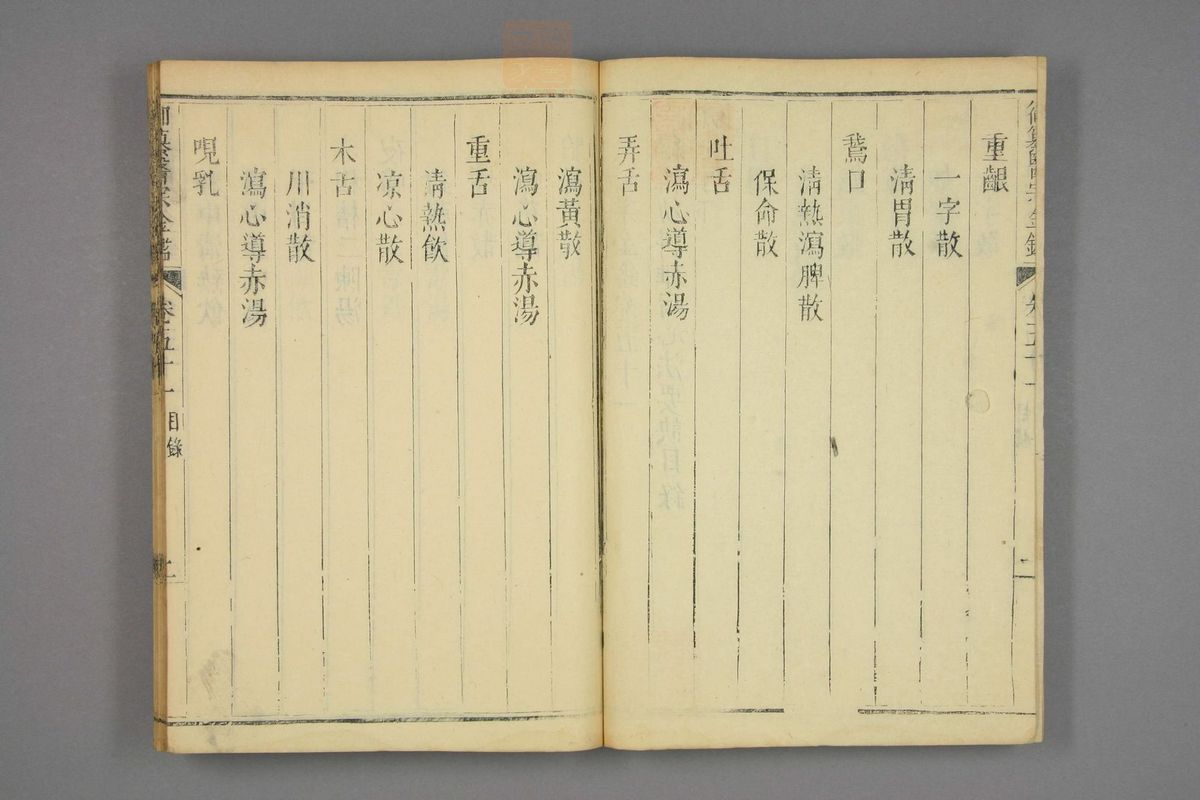 重齦
一字散
清胃散
鵞口
清熱瀉脾散
保命散
吐舌
瀉心導赤湯
弄舌
瀉黃散
瀉心導赤湯
重舌
清熱飲
凉心散
木舌
川消散
瀉心導赤湯
哯乳
御纂醫宗金鑑
卷五十一
目錄